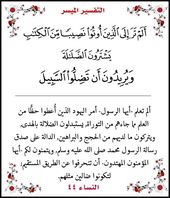 التفسير الميسر
أَلَمْ تَرَ إِلَى ٱلَّذِينَ أُوتُوا۟ نَصِيبًا مِّنَ ٱلْكِتَٰبِ
يَشْتَرُونَ ٱلضَّلَٰلَةَ
وَيُرِيدُونَ أَن تَضِلُّوا۟ ٱلسَّبِيلَ
ألم تعلم -أيها الرسول- أمر اليهود الذين أعطوا حظًّا من
العلم مما جاءهم من التوراة، يستبدلون الضلالة بالهدى،
ويتركون ما لديهم من الحجج والبراهين، الدالة على صدق
رسالة الرسول محمد صلى الله عليه وسلم، ويتمنون لكم -أيها
المؤمنون المهتدون- أن تنحرفوا عن الطريق المستقيم؛
لتكونوا ضالين مثلهم.
النساء ٤٤